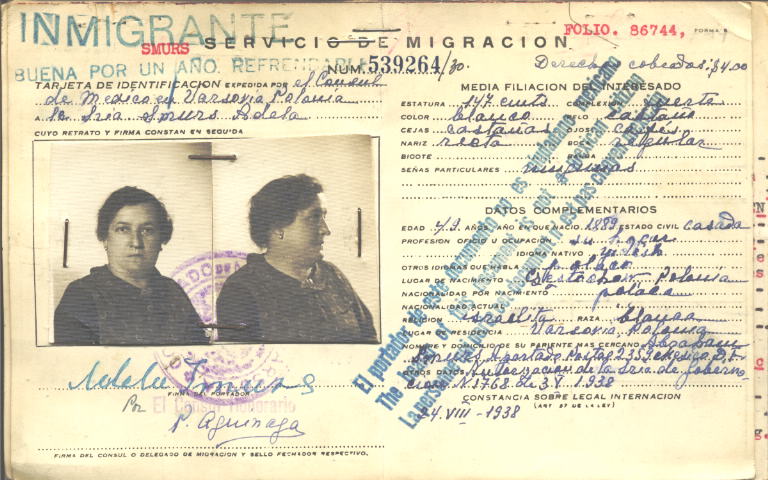 INMIGRANTE
SMURS
SERVICIO DE MIGRACION
FOLIO. 86744,
FORMA 5
BUENA POR UN AÑO. REFRENDABLE
NUM. 539264/30.
Derechos cobrados: $4.00
TARJETA DE IDENTIFICACION EXPEDIDA POR el Consul
de Mexico en Varsovia Polonia
A la Sria Smurs Adela
CUYO RETRATO Y FIRMA CONSTAN EN SEGUIDA
Adela Smurs
FIRMA DEL PORTADOR
Por El Consul Honorario
P. Aguinaga
FIRMA DEL CONSUL O DELEGADO DE MIGRACION Y SELLO FECHADOR RESPECTIVO.
MEDIA FILIACION DEL INTERESADO
ESTATURA 147 cmts COMPLEXION fuerte
COLOR blanco PELO castaño
CEJAS castañas OJOS cafés
NARIZ recta BOCA regular
BIGOTE BARBA
SEÑAS PARTICULARES ningunas
DATOS COMPLEMENTARIOS
EDAD 49 AÑOS, AÑO EN QUE NACIO 1889 ESTADO CIVIL casada
PROFESION OFICIO U OCUPACION su hogar
IDIOMA NATIVO
OTROS IDIOMAS QUE HABLA polaco
LUGAR DE NACIMIENTO Polonia
NACIONALIDAD POR NACIMIENTO polaca
NACIONALIDAD ACTUAL
RELIGION israelita RAZA blanca
LUGAR DE RESIDENCIA Varsovia, Polonia
NOMBRE Y DOMICILIO DE SU PARIENTE MAS CERCANO Abraham
Smurs Apartado Postal 2359 Mexico, D.F.
OTROS DATOS Autorizacion de la Sria. de Goberna-
cion N. 1768 de 3 V. 1938
CONSTANCIA SOBRE LEGAL INTERNACION
(ART 57 DE LA LEY)
24. VIII - 1938
El portador de este documento no es ciudadano mexicano
The bearer of this document is not a Mexican citizen